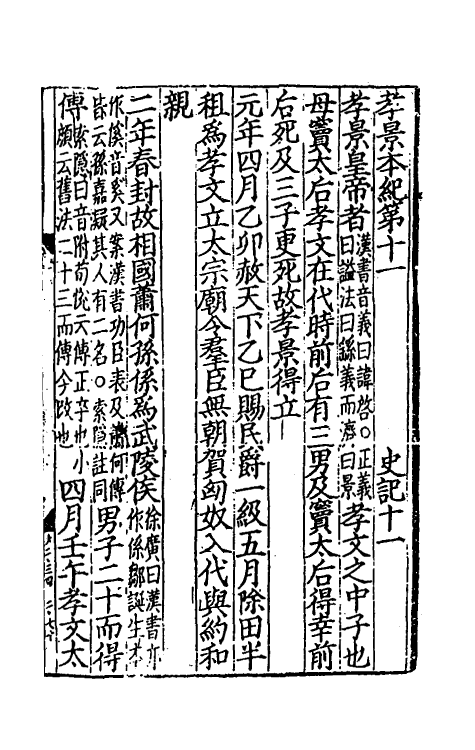 孝景本紀第十一 史記十一
孝景皇帝者漢書音義曰諱啓○正義曰謚法曰繇義而濟曰景孝文之中子也
母竇太后孝文在代時前后有三男及竇太后得幸前
后死及三子更死故孝景得立
元年四月乙卯赦天下乙巳賜民爵一級五月除田半
租爲孝文立太宗廟令羣臣無朝賀匈奴入代與約和
親
二年春封故相國蕭何孫係爲武陵侯徐廣曰漢書亦作係鄒誕生本
作傒音奚又案漢書功臣表及蕭何傳皆云孫嘉疑其人有二名○索隱註同男子二十而得
傅索隱曰音附荀悅云傅正卒也小顔云舊法二十三而傅今改也四月壬午孝文太